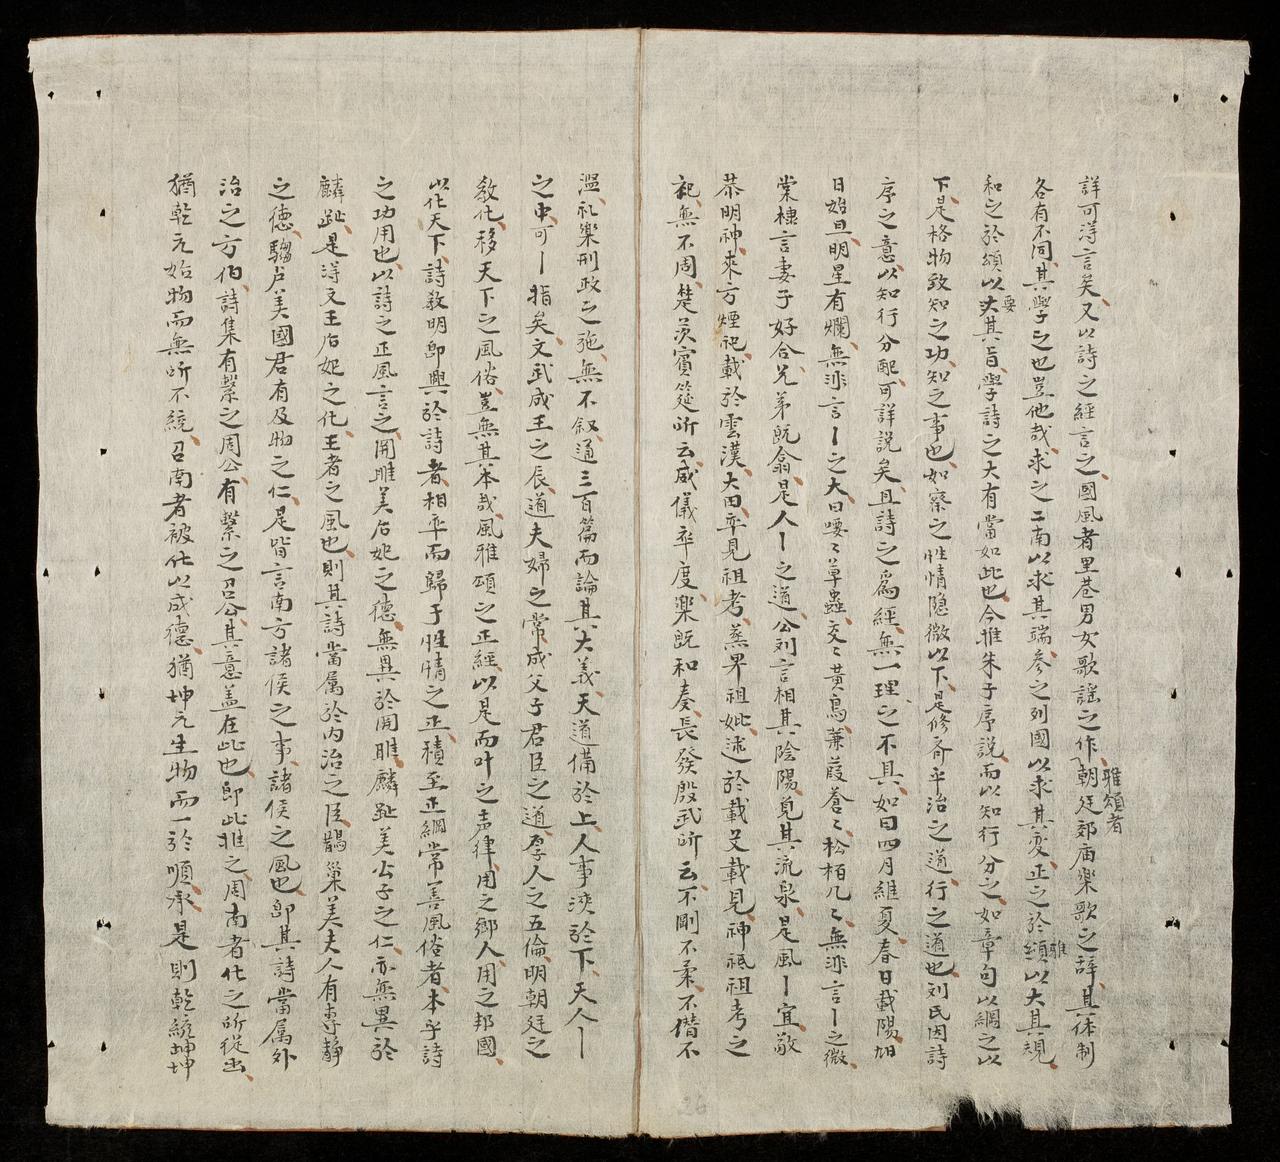 詳可淂言矣又以詩之經言之國風者里巷男女歌謡之作雅頌者朝廷郊庙樂歌之辞其体制
各有不同其學之也豈他哉求之二南以求其端参之列國以求其变正之於雅以大其規
和之於頌以要其旨學詩之大有當如此也今推朱子序説而以知行分之如章句以綱之以
下是格物致知之功知之事也如察之性情隐微以下是修斉平治之道行之道也刘氏因詩
序之意以知行分配可詳説矣且詩之爲經無一理之不具如曰四月維夏春日載陽旭
日始旦明星有爛無非言丨之大曰喓〻草蟲交〻黄鳥蒹葭蒼〻松栢丸〻無非言丨之微
棠棣言妻子好合兄弟旣翕是人丨之道公刘言相其陰陽覓其流泉是風丨宜敬
恭明神來方煙祀載於雲漢大田卒見祖考蒸畀祖妣述於載芟載見神祗祖考之
祀無不周楚茨賓筵所云威儀卒度楽旣和奏長發殷武所云不剛不柔不僭不
濫礼樂刑政之施無不叙通三百篇而論其大義天道備於上人事浹於下天人丨
之中可丨指矣文武成王之辰道夫婦之常成父子君臣之道厚人之五倫明朝廷之
敎化移天下之風俗豈無其本哉風雅頌之正經以是而叶之声律用之鄉人用之邦國
以化天下詩敎明卽興於詩者相率而歸于性情之正積至正綱常善風俗者本乎詩
之功用也以詩之正風言之関雎美后妃之德無異於関雎麟趾美公子之仁亦無異於
麟趾是淂文王后妃之化王者之風也則其詩當属於内治之臣鵲巢美夫人有専静
之德騶虞美國君有及物之仁是皆言南方諸侯之事諸侯之風也卽其詩當属外
治之方伯詩集有繋之周公有繋之召公其意盖在此也卽此推之周南者化之所從出
猶乾元始物而無所不統召南者被化以成德猶坤元生物而一於順承是則乾統坤坤